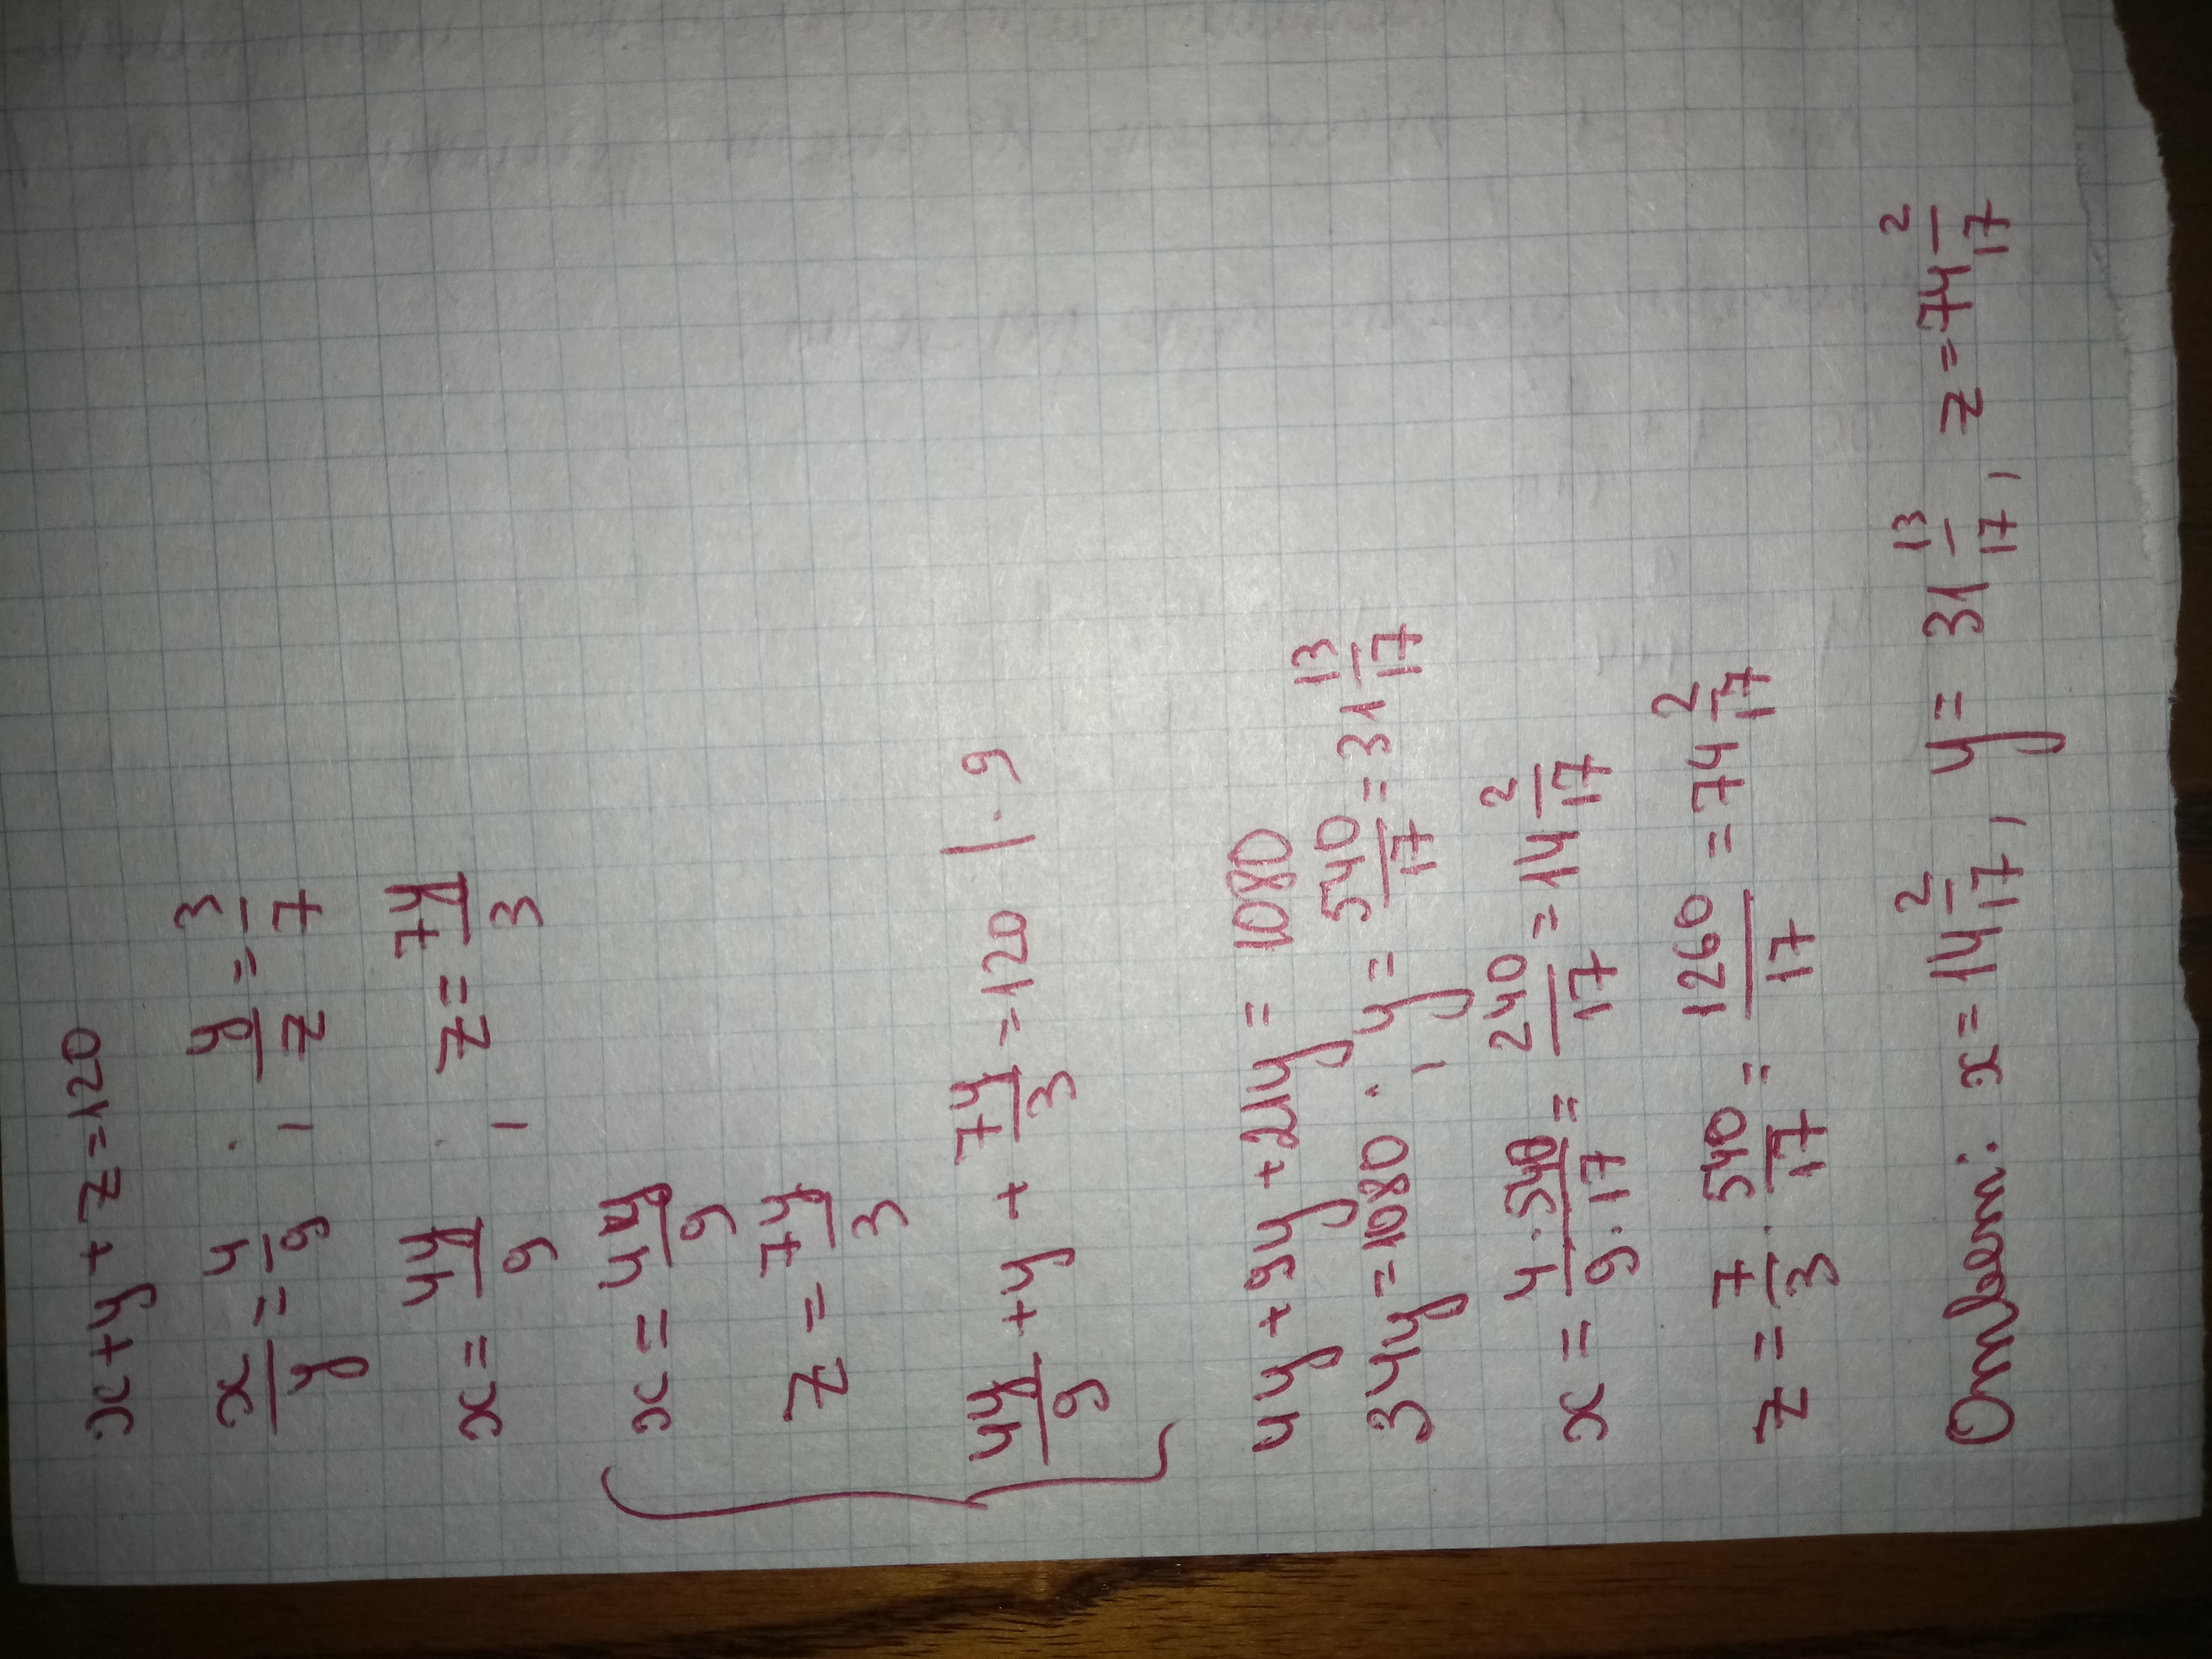 x+y+z=120
x/y=4/9; y/z=3/7
x=4y/9; z=7y/3
x=4y/9
z=7y/3
4y/9+y+7y/3=120 |·9
4y+9y+21y=1080
34y=1080; y=540/17=31 13/17
x=4·540/9·17=240/17=14 2/17
z=7/3·540/17=1260/17=74 2/17
Ответ: x=14 2/17, y=31 13/17, z=74 2/17